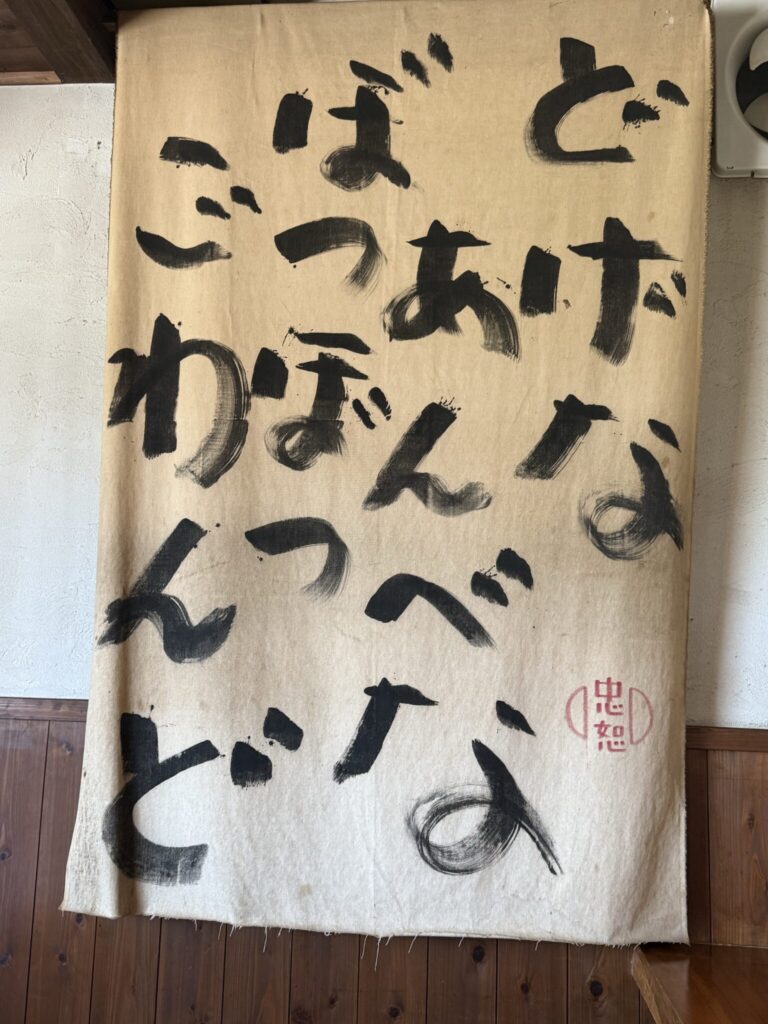 どげな
あんべな
ぼつぼつ
ごわんど
忠恕